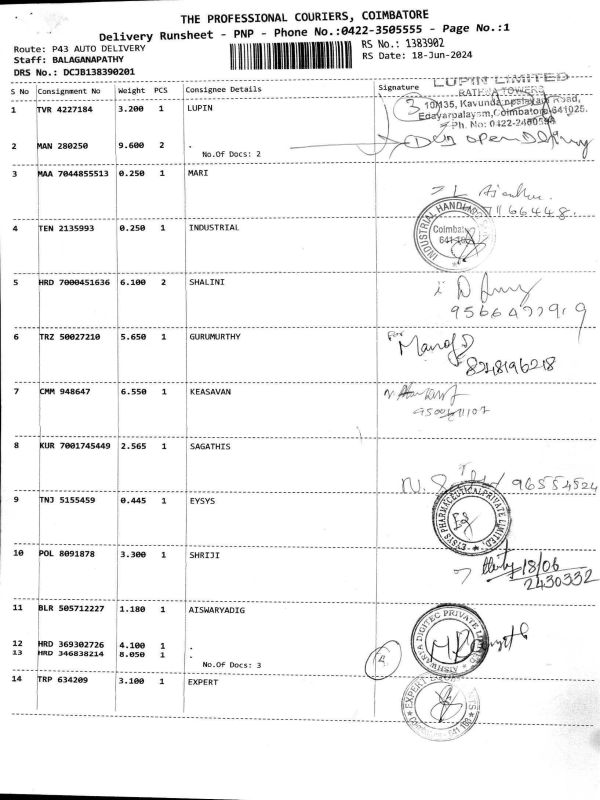 THE PROFESSIONAL COURIERS, COIMBATORE
Delivery Runsheet - PNP - Phone No.:0422-3505555 - Page No.:1
Route: P43 AUTO DELIVERY
RS No.: 1383902
Staff: BALAGANAPATHY
RS Date: 18-Jun-2024
DRS No.: DCJB138390201
S No Consignment No Weight PCS Consignee Details Signature
LUPIN LIMITED
RATHNA TOWERS
1 TVR 4227184 3.200 1 LUPIN
3
10/435, Kavundampalayam Road,
Edayarpalayam, Coimbatore 641025.
Ph. No: 0422-2400594
2 MAN 280250 9.600 2 .
No.Of Docs: 2
open Delivery
3 MAA 7044855513 0.250 1 MARI
4 TEN 2135993 0.250 1 INDUSTRIAL
INDUSTRIAL
Coimbatore
5 HRD 7000451636 6.100 2 SHALINI
6 TRZ 50027210 5.650 1 GURUMURTHY
For
Manoj
8248196218
7 CMM 948647 6.550 1 KEASAVAN
8 KUR 7001745449 2.565 1 SAGATHIS
9 TNJ 5155459 0.445 1 EYSYS
EISYS PHARMACEUTICAL PRIVATE LIMITED
10 POL 8091878 3.300 1 SHRIJI
18/06
2430332
11 BLR 505712227 1.180 1 AISWARYADIG
AISHWARIA DIGITEC PRIVATE LIMITED
12 HRD 369302726 4.100 1 .
13 HRD 346838214 8.050 1 .
No.Of Docs: 3
14 TRP 634209 3.100 1 EXPERT
EXPERT